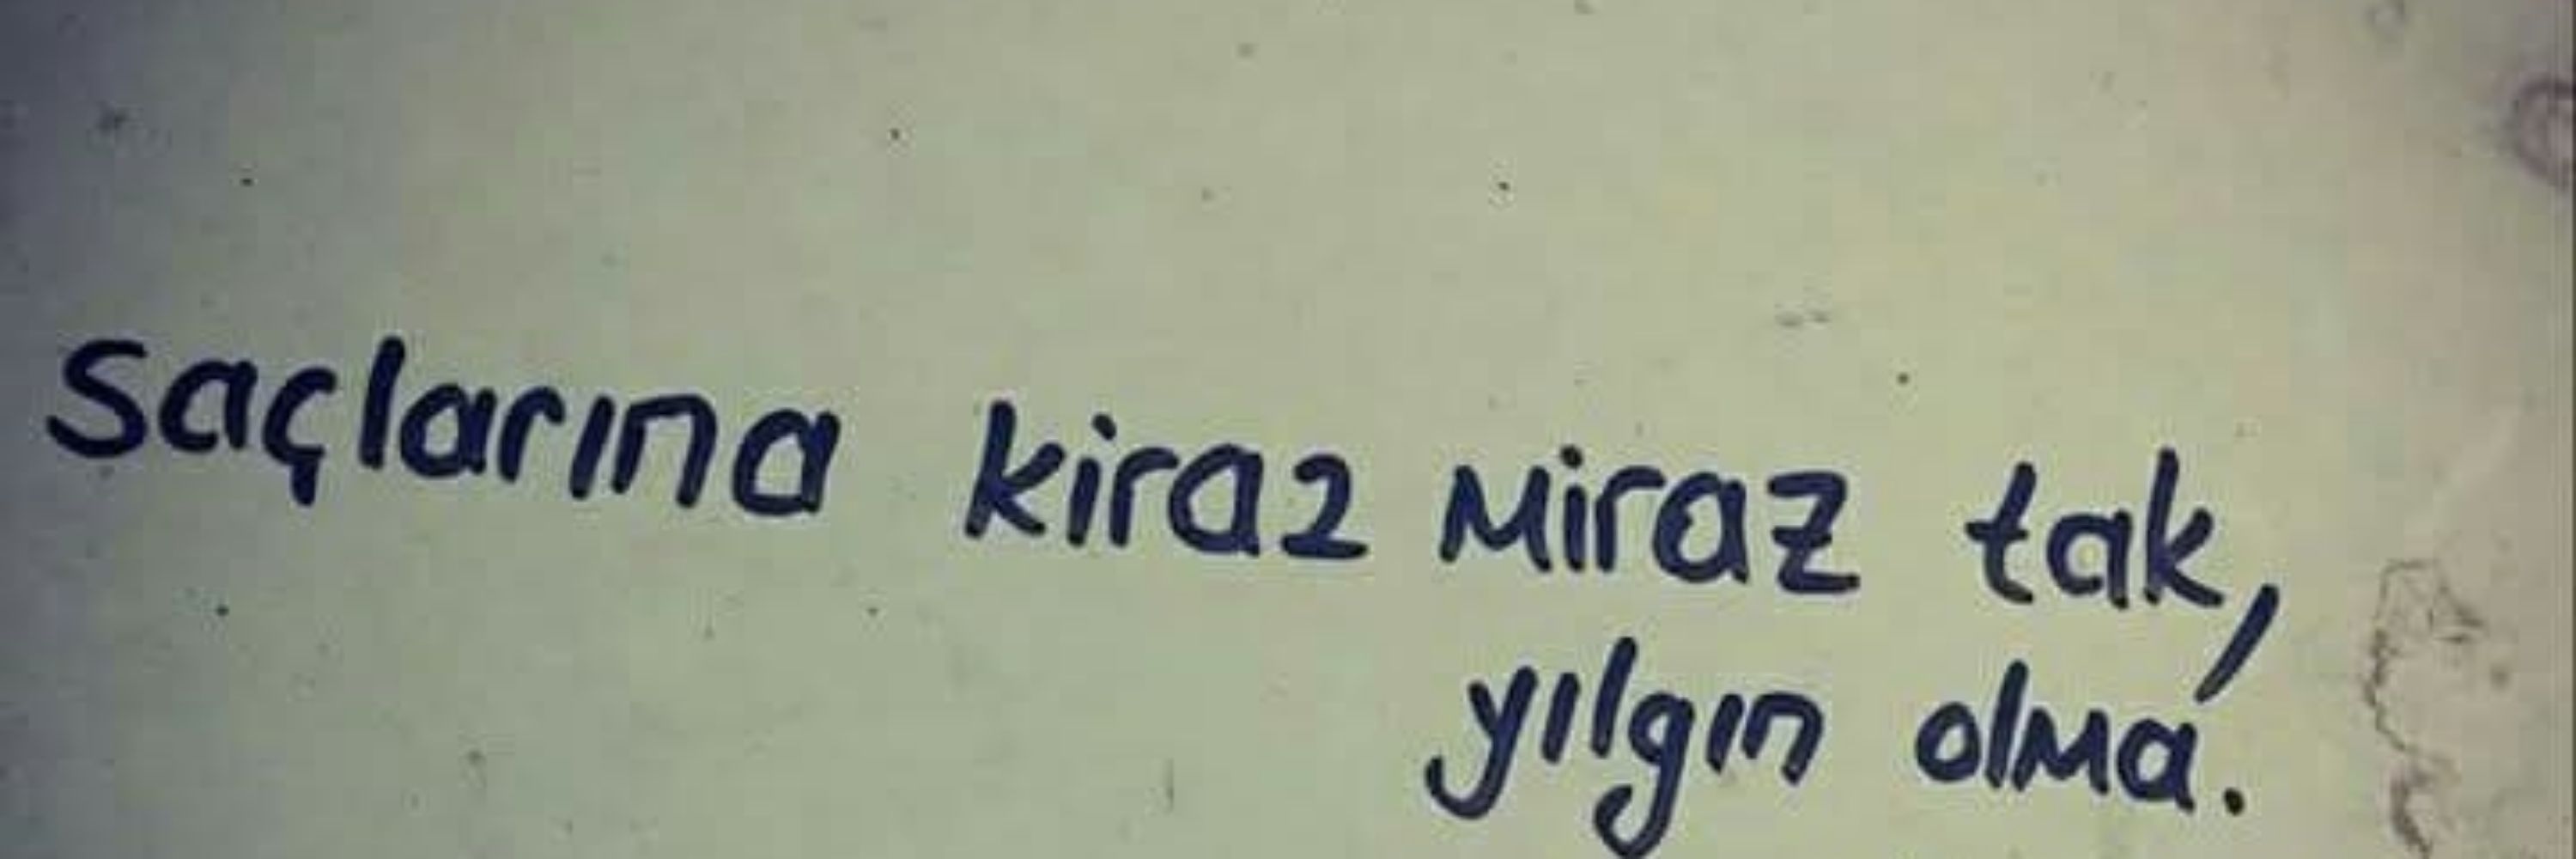 saçlarına kiraz miraz tak,
yılgın olma.